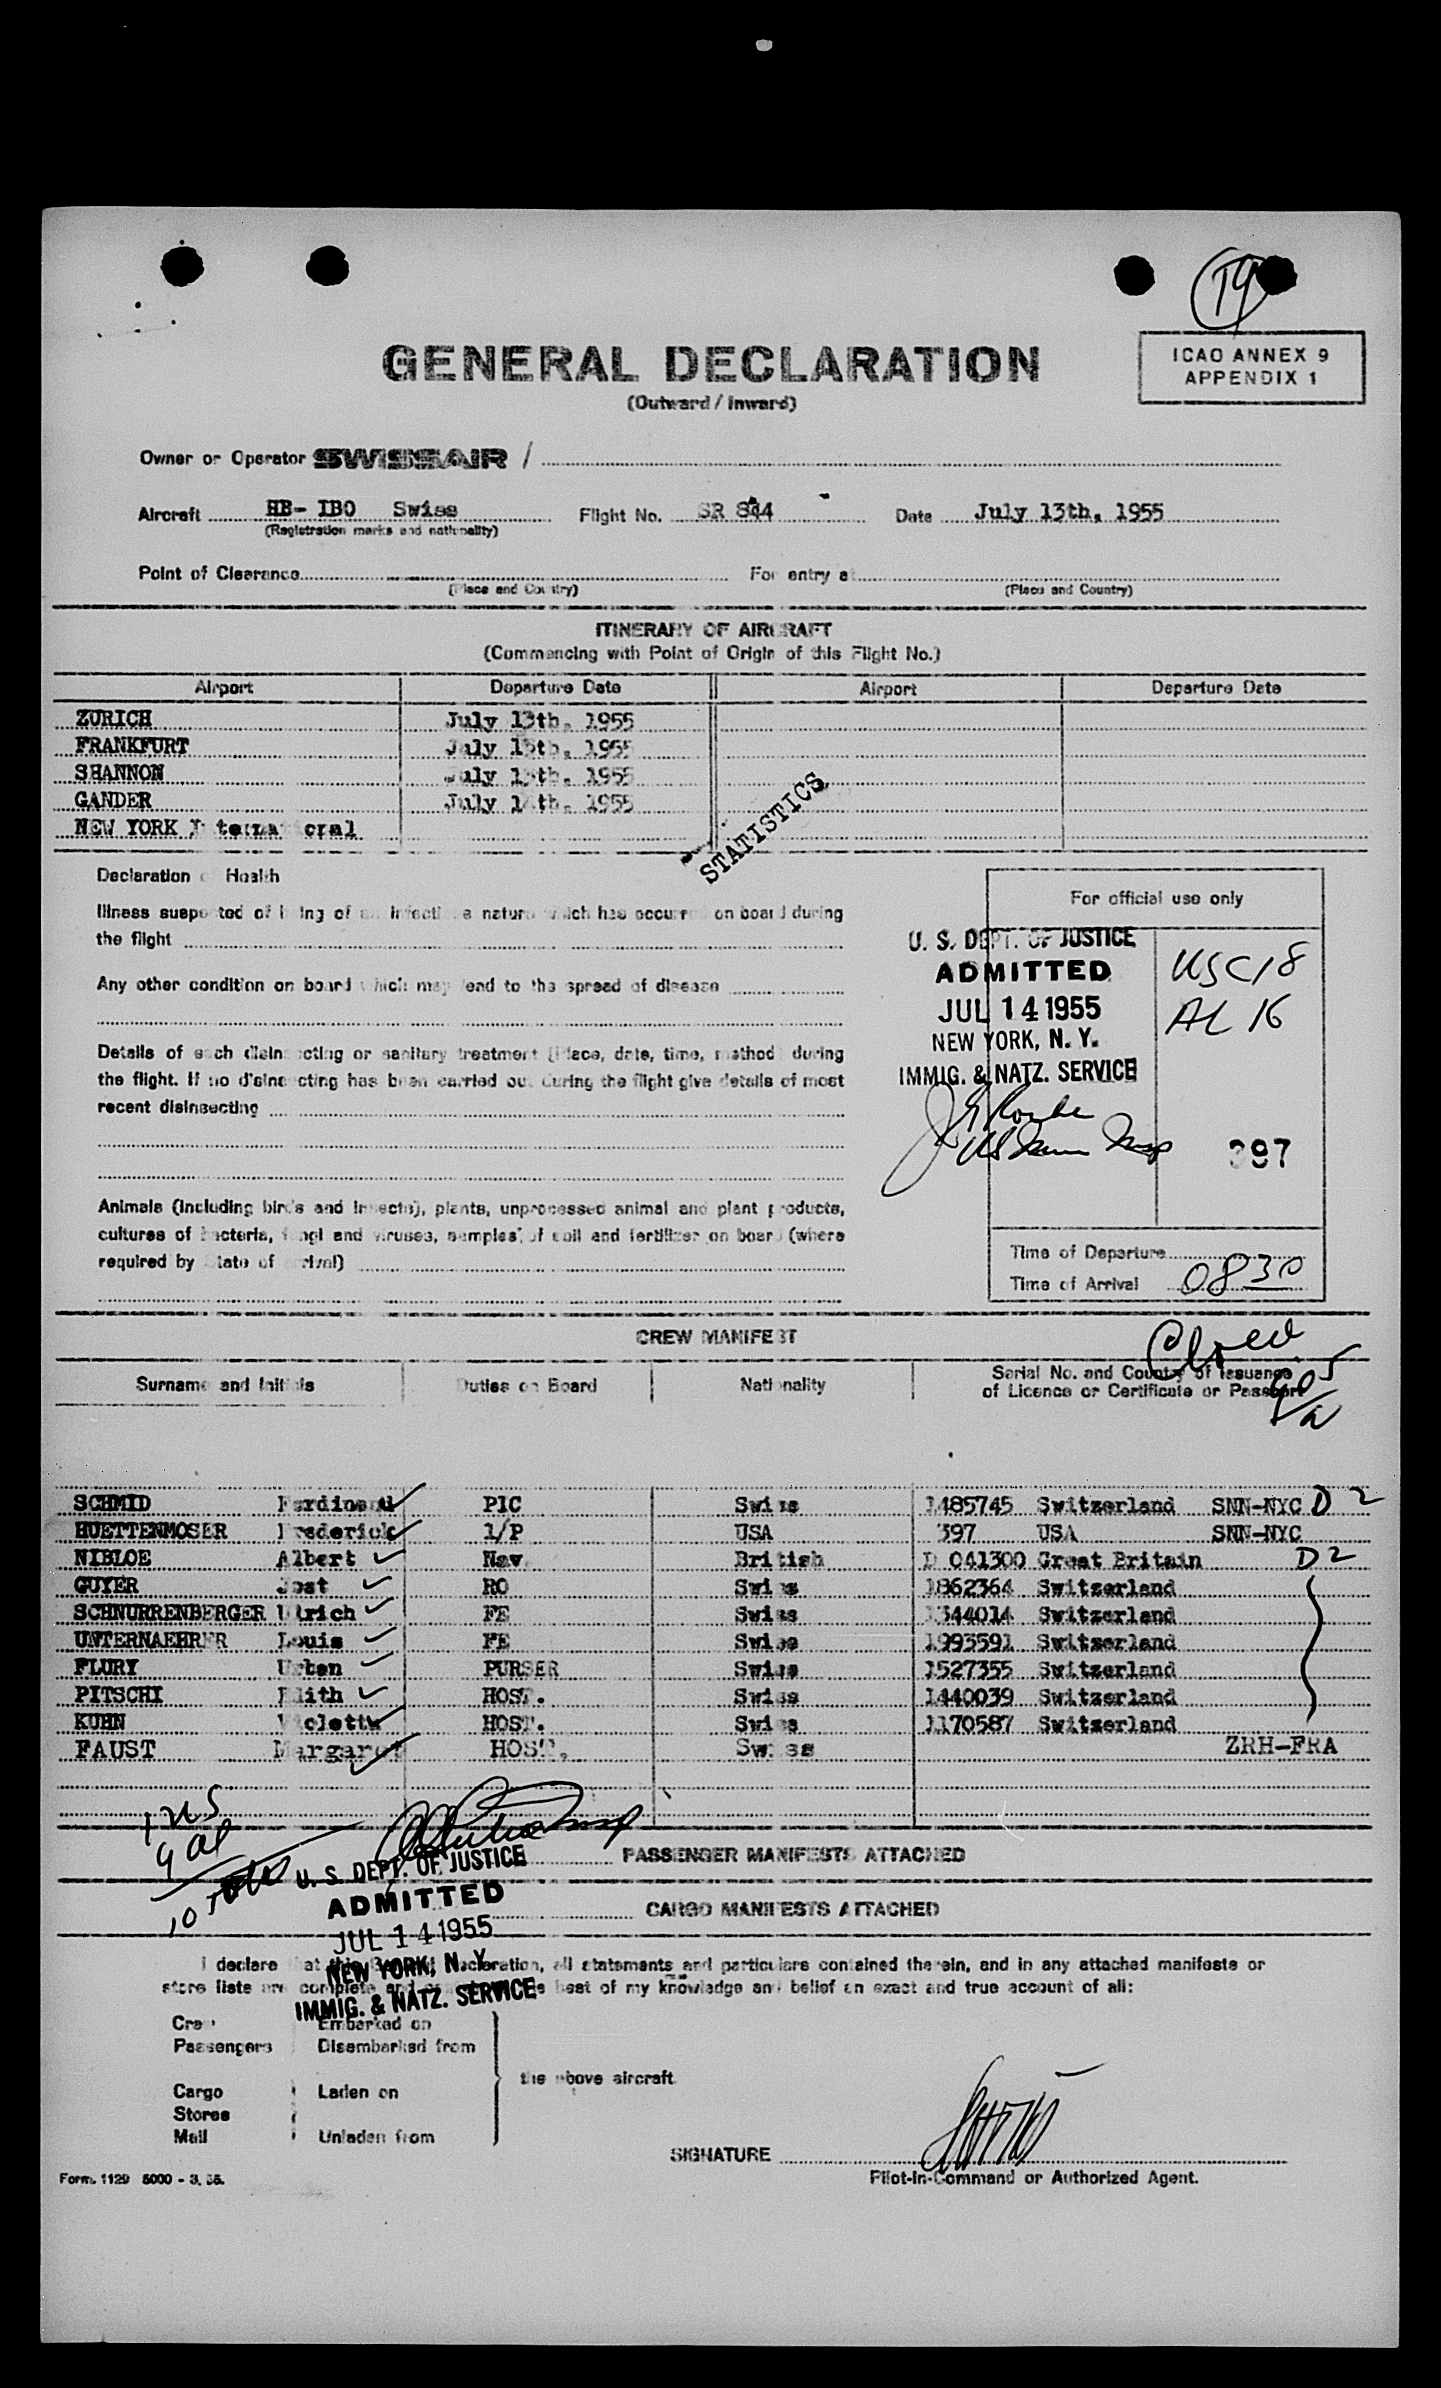 19
GENERAL DECLARATION
(Outward / Inward)
ICAO ANNEX 9
APPENDIX 1
Owner or Operator SWISSAIR /
Aircraft HB- IBO Swiss Flight No. SR 844 Date July 13th, 1955
(Registration marks and nationality)
Point of Clearance For entry at
(Place and Country) (Place and Country)
ITINERARY OF AIRCRAFT
(Commencing with Point of Origin of this Flight No.)
Airport Departure Date Airport Departure Date
ZURICH July 13th, 1955
FRANKFURT July 13th, 1955
SHANNON July 13th, 1955
GANDER July 14th, 1955
NEW YORK International
STATISTICS
Declaration of Health
Illness suspected of being of an infectious nature which has occurred on board during
the flight
Any other condition on board which may lead to the spread of disease
Details of each disinsecting or sanitary treatment (place, date, time, method) during
the flight. If no disinsecting has been carried out during the flight give details of most
recent disinsecting
Animals (including birds and insects), plants, unprocessed animal and plant products,
cultures of bacteria, fungi and viruses, samples of soil and fertilizer on board (where
required by State of arrival)
For official use only
U. S. DEPT. OF JUSTICE
ADMITTED
JUL 14 1955
NEW YORK, N. Y.
IMMIG. & NATZ. SERVICE
USC 18
AL 16
397
Time of Departure
Time of Arrival 0830
CREW MANIFEST
Surname and Initials Duties on Board Nationality Serial No. and Country of Issuance
of Licence or Certificate or Passport
SCHMID Ferdinand PIC Swiss 1485745 Switzerland SNN-NYC D 2
HUETTENMOSER Frederick 1/P USA 397 USA SNN-NYC
NIBLOE Albert Nav. British D 041300 Great Britain D 2
GUYER Jost RO Swiss 1862364 Switzerland
SCHNURRENBERGER Ulrich FE Swiss 1344014 Switzerland
UNTERNAEHRER Louis FE Swiss 1993591 Switzerland
FLURY Urban PURSER Swiss 1527355 Switzerland
PITSCHI Edith HOST. Swiss 1440039 Switzerland
KUHN Violette HOST. Swiss 1170587 Switzerland
FAUST Margaret HOST. Swiss ZRH-FRA
1 US
9 al
10 Total
PASSENGER MANIFESTS ATTACHED
U. S. DEPT. OF JUSTICE
ADMITTED
JUL 14 1955
NEW YORK, N. Y.
IMMIG. & NATZ. SERVICE
CARGO MANIFESTS ATTACHED
I declare that Declaration, all statements and particulars contained therein, and in any attached manifests or
store lists are complete and best of my knowledge and belief an exact and true account of all:
Crew Embarked on
Passengers Disembarked from
the above aircraft
Cargo Laden on
Stores
Mail Unladen from
SIGNATURE
Pilot-in-Command or Authorized Agent.
Form. 1129 5000 - 3. 55.